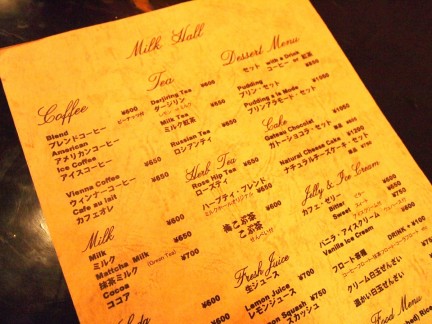 Milk Hall
Coffee
¥600
Blend
ブレンドコーヒー
American
アメリカンコーヒー
Ice Coffee
アイスコーヒー
¥650
Vienna Coffee
ウィンナーコーヒー
Cafe au lait
カフェオレ
¥650
Milk
¥650
Milk
ミルク
Matcha Milk (Green Tea)
抹茶ミルク
¥700
Cocoa
ココア
Tea
Darjiring Tea
ダージリン
¥600
Milk Tea
ミルク紅茶
Russian Tea
ロシアンティ
¥650
Herb Tea
Rose Hip Tea
ローズティ
¥600
ハーブティ・ブレンド
ミルクホールオリジナル
¥650
梅こぶ茶
こぶ茶
せんべい付
¥600
Fresh Juice
生ジュース
Lemon Juice
レモンジュース
¥700
Lemon Squash
スカッシュ
¥750
Dessert Menu
セット with a Drink
コーヒー or 紅茶
Pudding
プリン・セット
¥950
Pudding a la Mode
プリンアラモード・セット
¥1350
Cake
Gateau Chocolat
ガトーショコラ・セット
Natural Cheese Cake
ナチュラルチーズケーキ・セット
Jelly & Ice Cream
カフェ・ゼリー
Bitter
Sweet
バニラ・アイスクリーム
Vanilla Ice Cream
フロート各種
DRINK + ¥100
クリーム白玉ぜんざい
温かい白玉ぜんざい
Food Menu
Rice